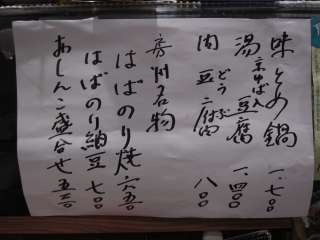 味とめ鍋 一、七〇〇
京ゆば入
湯豆腐 一、四〇〇
肉豆腐 八〇〇
どうふ
房州名物
はばのり焼 六五〇
はばのり納豆 七〇〇
おしんこ盛合せ 五五〇